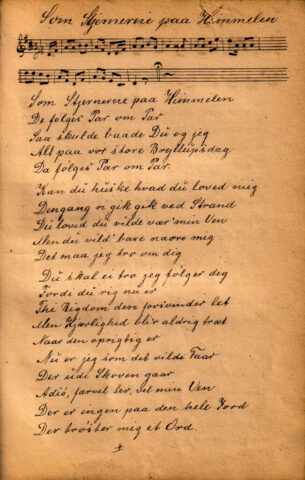 Som Stjernerne paa Himmelen
Som Stjernerne paa Himmelen
De følges Par om Par
Saa skulde baade Du og jeg
Alt paa vor store Bryllupsdag
Da følges Par om Par.
Kan du huske hvad du loved mig
Dengang vi gik ved Strand
Du loved du vilde vær' min Ven
Men du vild' bare naare mig
Det maa jeg tro om dig
Du skal ei tro jeg følger deg
Fordi du rig nu er
Thi Rigdom den forsvinder let
Men Kjærlighed bli'r aldrig træt
Naar den oprigtig er
Nu er jeg som det vilde Faar
Der udi Skoven gaar
Adiø, farvel min Ven
Der er ingen paa den hele Jord
Der trøster meg et Ord.